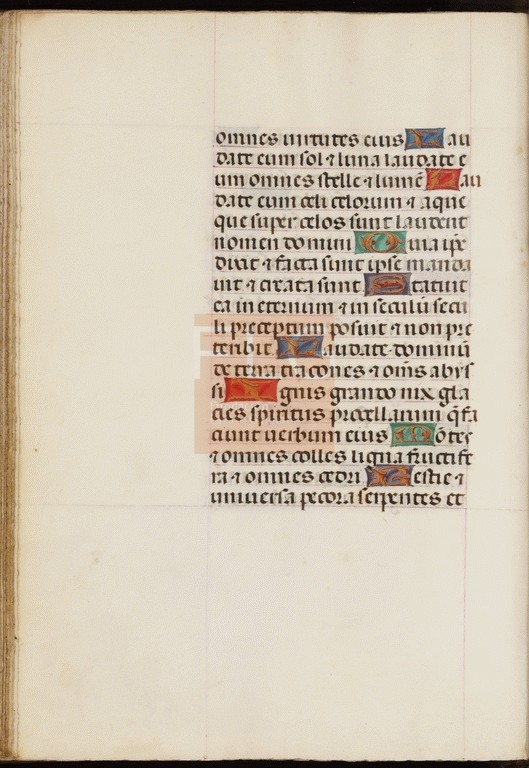 omnes uirtutes eius Lau
date eum sol ⁊ luna laudate e
um omnes stelle ⁊ lumē Lau
date eum celi celorum ⁊ aque
que super celos sunt laudent
nomen domini Quia ip̄e
dixit ⁊ facta sunt ipse manda
uit ⁊ creata sunt Statuit
ea in eternum ⁊ in seculū secu
li preceptum posuit ⁊ non pre
teribit Laudate dominū
de terra dracones ⁊ om̄s abys
si Ignis grando nix gla
cies spiritus procellarum q̄ fa
ciunt uerbum eius Mōtes
⁊ omnes colles ligna fructife
ra ⁊ omnes cedri Bestie ⁊
uniuersa pecora serpentes et